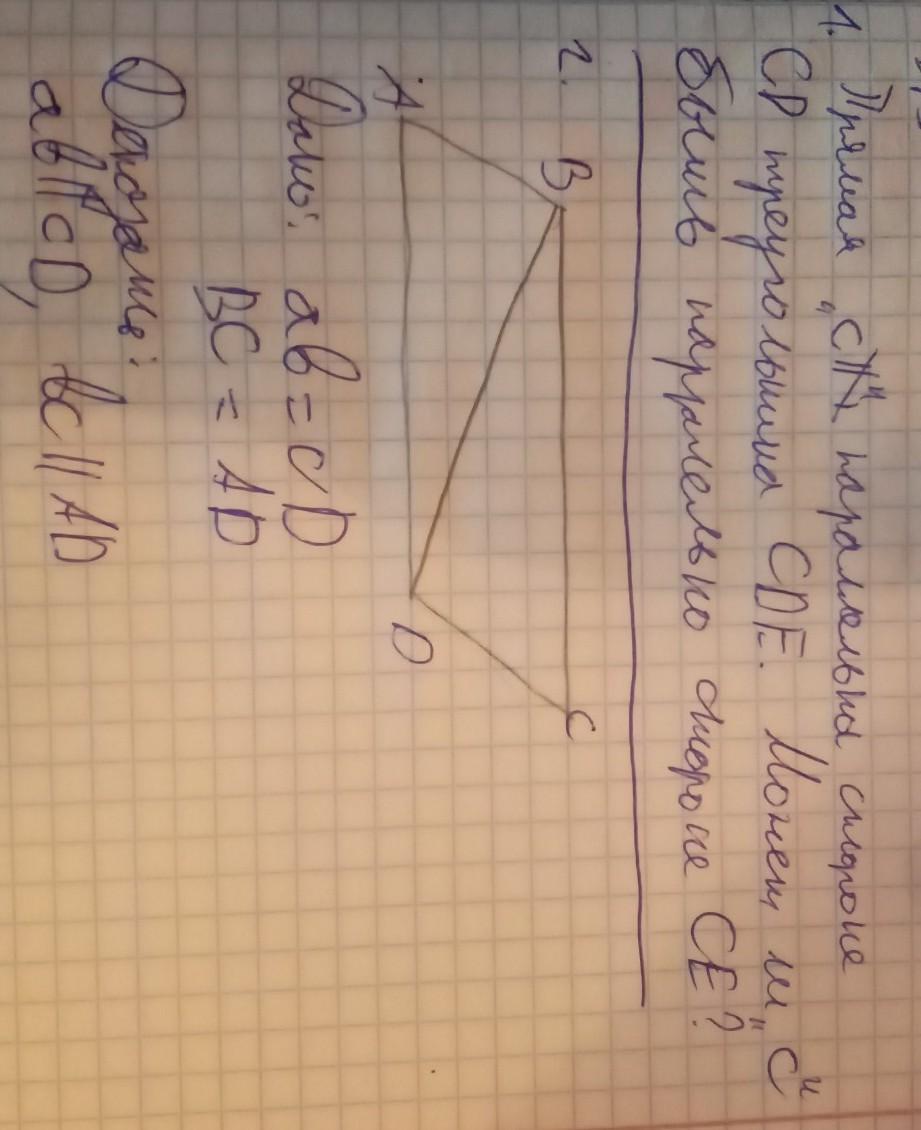 1. Прямая „с" параллельна стороне
CD треугольника CDE. Может ли „с"
быть параллельно стороне CE?
2.
B
C
A
D
Дано: ab = cD
BC = AD
Доказать:
ab || cD, bc || AD